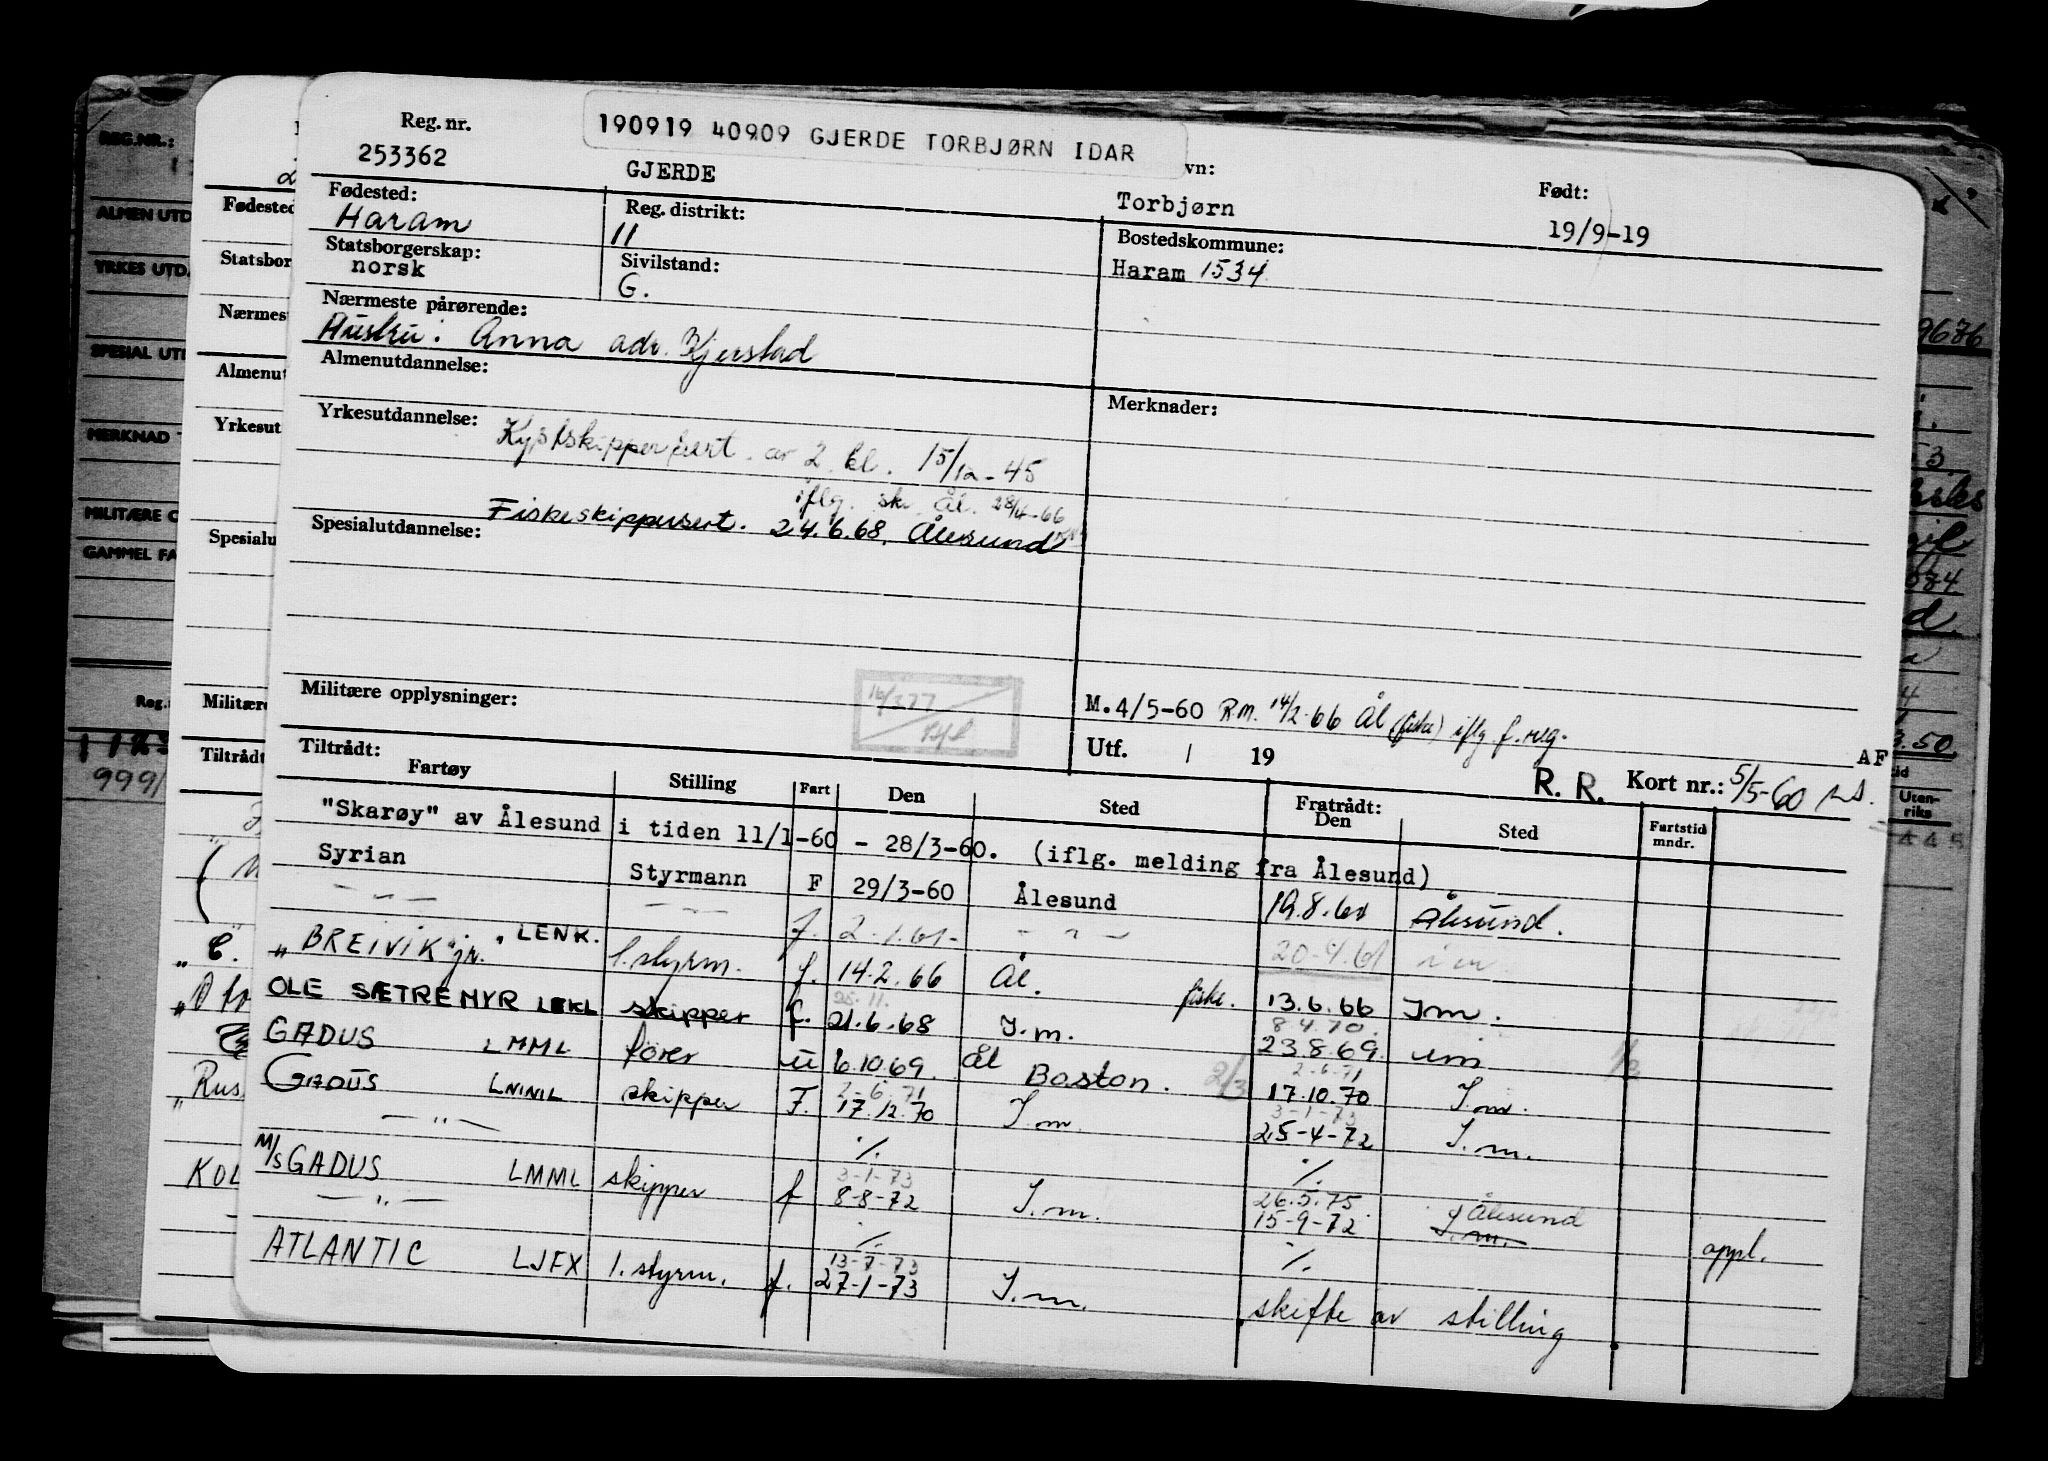 190919 40909 GJERDE TORBJØRN IDAR
Reg. nr. vn: Født:
253362 GJERDE Torbjørn 19/9-19
Fødested: Reg. distrikt: Bostedskommune:
Haram 11 Haram 1534
Statsborgerskap: Sivilstand:
norsk G.
Nærmeste pårørende:
Hustru: Anna adr. Kjerstad
Almenutdannelse: Merknader:
Yrkesutdannelse: Kystskippersert. av 2. kl. 15/12-45
iflg. sk. Ål. 28/4-66
Fiskeskippersert. 24.6.68. Ålesund
Spesialutdannelse:
Militære opplysninger: M.4/5-60 Rm. 14/2-66 Ål (fiske) iflg f. reg.
Utf. / 19 AF
Tiltrådt: R. R. Kort nr.: 5/5-60
Fartøy Stilling Fart Den Sted Fratrådt: Den Sted Fartstid mndr.
"Skarøy" av Ålesund i tiden 11/1-60 - 28/3-60. (iflg. melding fra Ålesund)
Syrian Styrmann F 29/3-60 Ålesund 19.8.60 Ålesund.
— " — — " — f. 2-1.61- - " - 20-4.61
"BREIVIK jr." LENK. 1. styrm. f. 14.2.66 Ål. fiske. 13.6.66 Im.
25.11. 8.4.70.
OLE SÆTREMYR LEKL skipper f. 21.6.68 I.m. 23.8.69. um
GADUS LMML fører u 6.10.69. Ål Boston. 2/3 17.10.70 I.m.
2-6.71 2-6-71
GADUS LMML skipper F. 17.12.70 I.m. 25-4-72 I.m.
3-1-73
— " — % %
3-1-73 26.5.75 Ålesund
M/S GADUS LMML skipper f 8-8-72 I.m. 15-9-72 I.m.
— " — % % oppl.
13-7-73
ATLANTIC LJFX 1. styrm. f. 27-1-73 I.m. skifte av stilling
REG.NR.:
ALMEN UTD
YRKES UTD.
SPESIAL UTI
MERKNAD
MILITÆRE O
GAMMEL FA
Reg.
999/
Fødested
Statsbor
Nærmes
Almenut
Yrkesut
Spesialu
Militære
Tiltrådt
Rus
KOL
9676
3.50
Uten-
riks
445